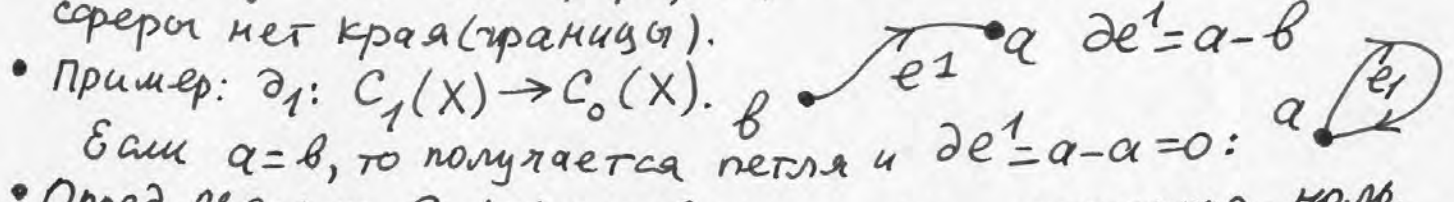 сферы нет края (границы).
• Пример: ∂₁: C₁(X) → C₀(X). в e¹ a ∂e¹ = a - в
Если a = в, то получается петля и ∂e¹ = a - a = 0: a e₁